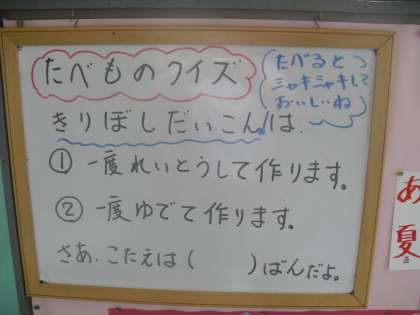 たべものクイズ
たべると
シャキシャキして
おいしいね
きりぼしだいこんは、
① 一度れいとうして作ります。
② 一度ゆでて作ります。
さあ、こたえは(　　)ばんだよ。
あ
夏